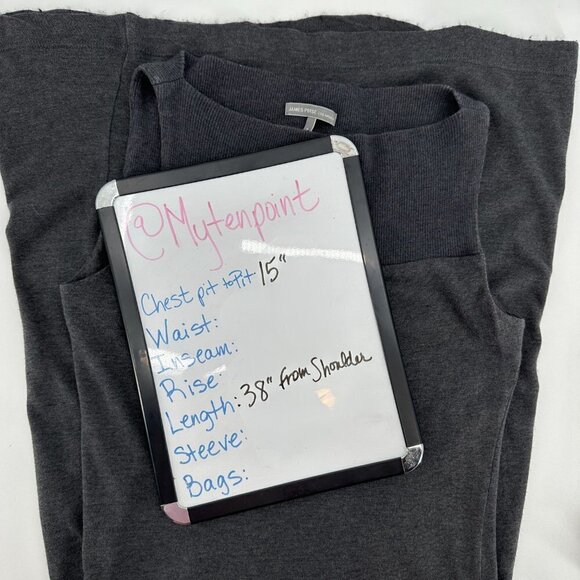 JAMES PERSE
@Mytenpoint
Chest pit to Pit 15"
Waist:
Inseam:
Rise:
Length: 38" from Shoulder
Steeve:
Bags: